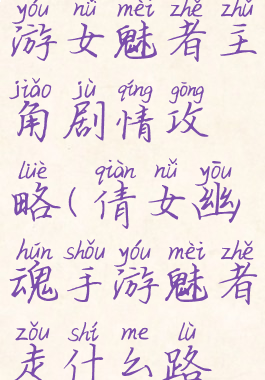 yóu nǚ mèi zhě zhǔ
游女魅者主
jiǎo jù qíng gōng
角剧情攻
lüè qiàn nǚ yōu
略(倩女幽
hún shǒu yóu mèi zhě
魂手游魅者
zǒu shí me lù
走什么路